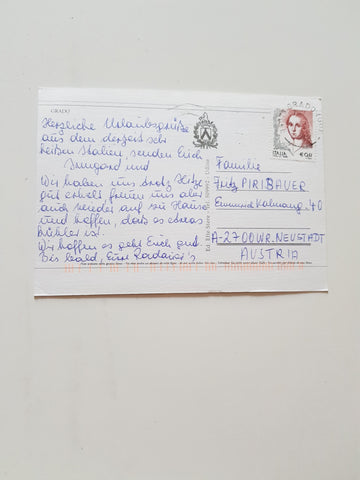 GRADO
Herzliche Urlaubsgrüße
aus dem derzeit sehr
heißen Italien, senden Euch
Irmgard und
Wir haben uns trotz Hitze
gut erholt freuen uns aber
auch wieder auf zu Hause
und hoffen, dass es etwas
kühler ist.
Wir hoffen es geht Euch gut
Bis bald, Eure
ITALIA
Familie
Fritz PIRIBAUER
40
A-2700 WR. NEUSTADT
AUSTRIA